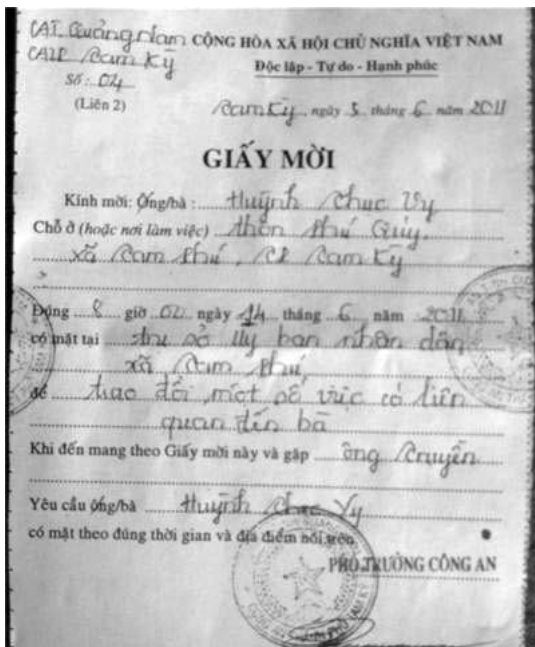 CAT Quảng Nam CỘNG HÒA XÃ HỘI CHỦ NGHĨA VIỆT NAM
CATP Tam Kỳ Độc lập - Tự do - Hạnh phúc
Số: 04
(Liên 2) Tam Kỳ, ngày 5 tháng 6 năm 2011
GIẤY MỜI
Kính mời: Ông/bà: Huỳnh Thục Vy
Chỗ ở (hoặc nơi làm việc) thôn Phú Quý,
xã Tam Phú, TP Tam Kỳ
Đúng 8 giờ 00 ngày 14 tháng 6 năm 2011
có mặt tại trụ sở Uỷ ban nhân dân
xã Tam Phú
để trao đổi một số việc có liên
quan đến bà
Khi đến mang theo Giấy mời này và gặp ông Truyền
Yêu cầu ông/bà Huỳnh Thục Vy
có mặt theo đúng thời gian và địa điểm nói trên
PHÓ TRƯỞNG CÔNG AN